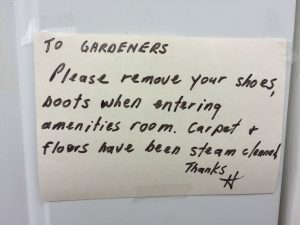 TO GARDENERS
Please remove your shoes,
boots when entering
amenities room. Carpet +
floors have been steam cleaned
Thanks
H